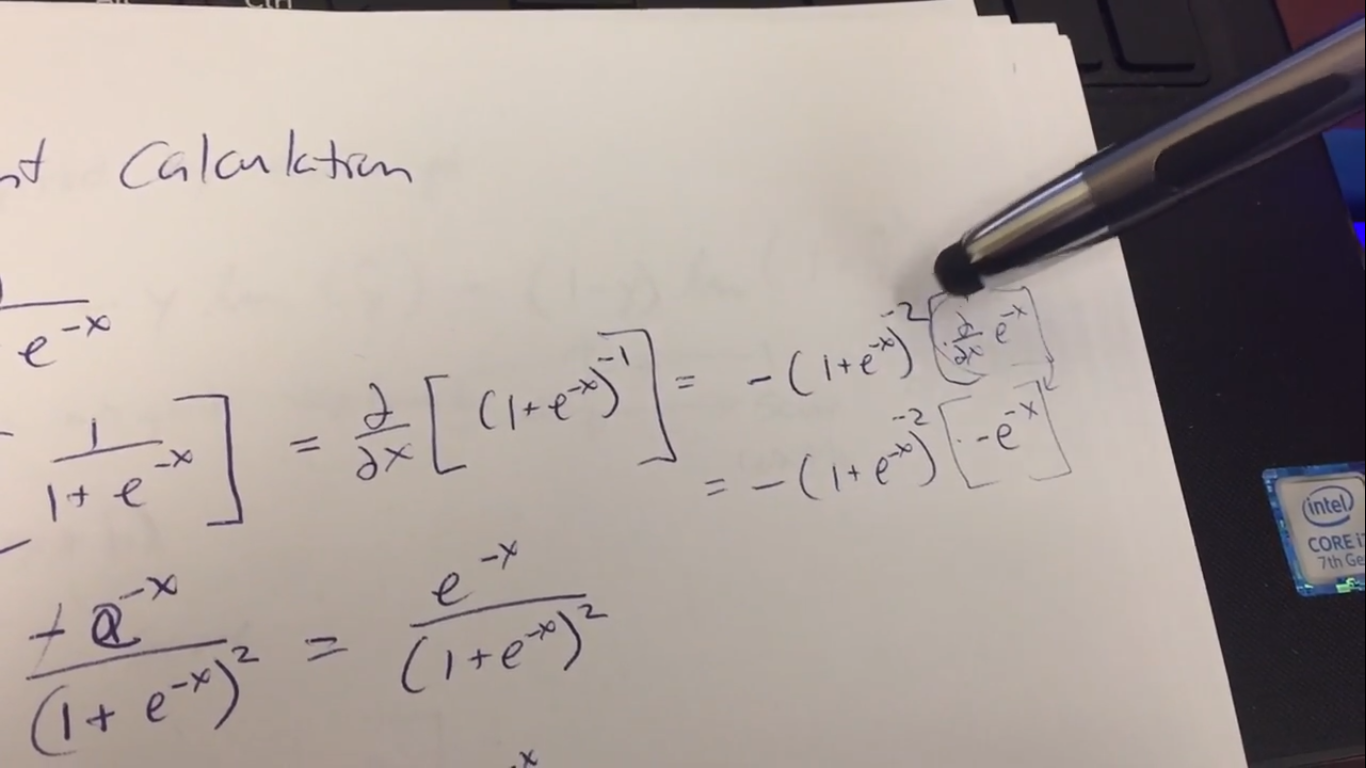 nt Calculation
e^{-x}
\frac{1}{1+e^{-x}} ] = \frac{∂}{∂x} [ (1+e^{-x})^{-1} ] = -(1+e^{-x})^{-2} [ \frac{∂}{∂x} e^{-x} ]
= -(1+e^{-x})^{-2} [ -e^{-x} ]
\frac{+e^{-x}}{(1+e^{-x})^2} = \frac{e^{-x}}{(1+e^{-x})^2}
-x
intel
CORE i7
7th Ge